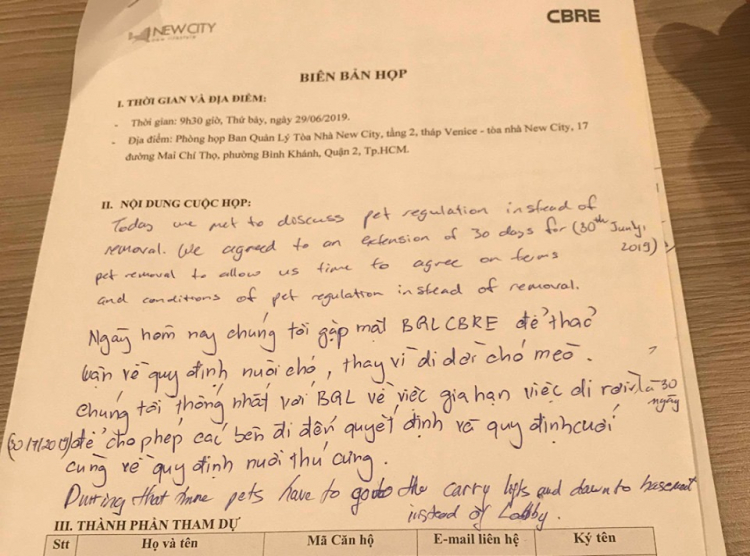 NEWCITY
CBRE
BIÊN BẢN HỌP
I. THỜI GIAN VÀ ĐỊA ĐIỂM:
- Thời gian: 9h30 giờ, Thứ bảy, ngày 29/06/2019.
- Địa điểm: Phòng họp Ban Quản Lý Tòa Nhà New City, tầng 2, tháp Venice - tòa nhà New City, 17
đường Mai Chí Thọ, phường Bình Khánh, Quận 2, Tp.HCM.
II. NỘI DUNG CUỘC HỌP:
Today we met to discuss pet regulation instead of
removal. We agreed to an extension of 30 days for (30th
2019)
pet removal to allow us time to agree on terms
and conditions of pet regulation instead of removal.
Ngày hôm nay chúng tôi gặp mặt BQL CBRE để thảo
luận về quy định nuôi chó, thay vì di dời chó mèo.
Chúng tôi thống nhất với BQL về việc gia hạn việc di rời là 30
ngày
(30/7/2019) để cho phép các bên đi đến quyết định và quy định cuối
cùng về quy định nuôi thú cưng.
During that time pets have to go to the carry lifts and down to basement
instead of Lobby.
III. THÀNH PHẦN THAM DỰ
Stt Họ và tên Mã Căn hộ E-mail liên hệ Ký tên